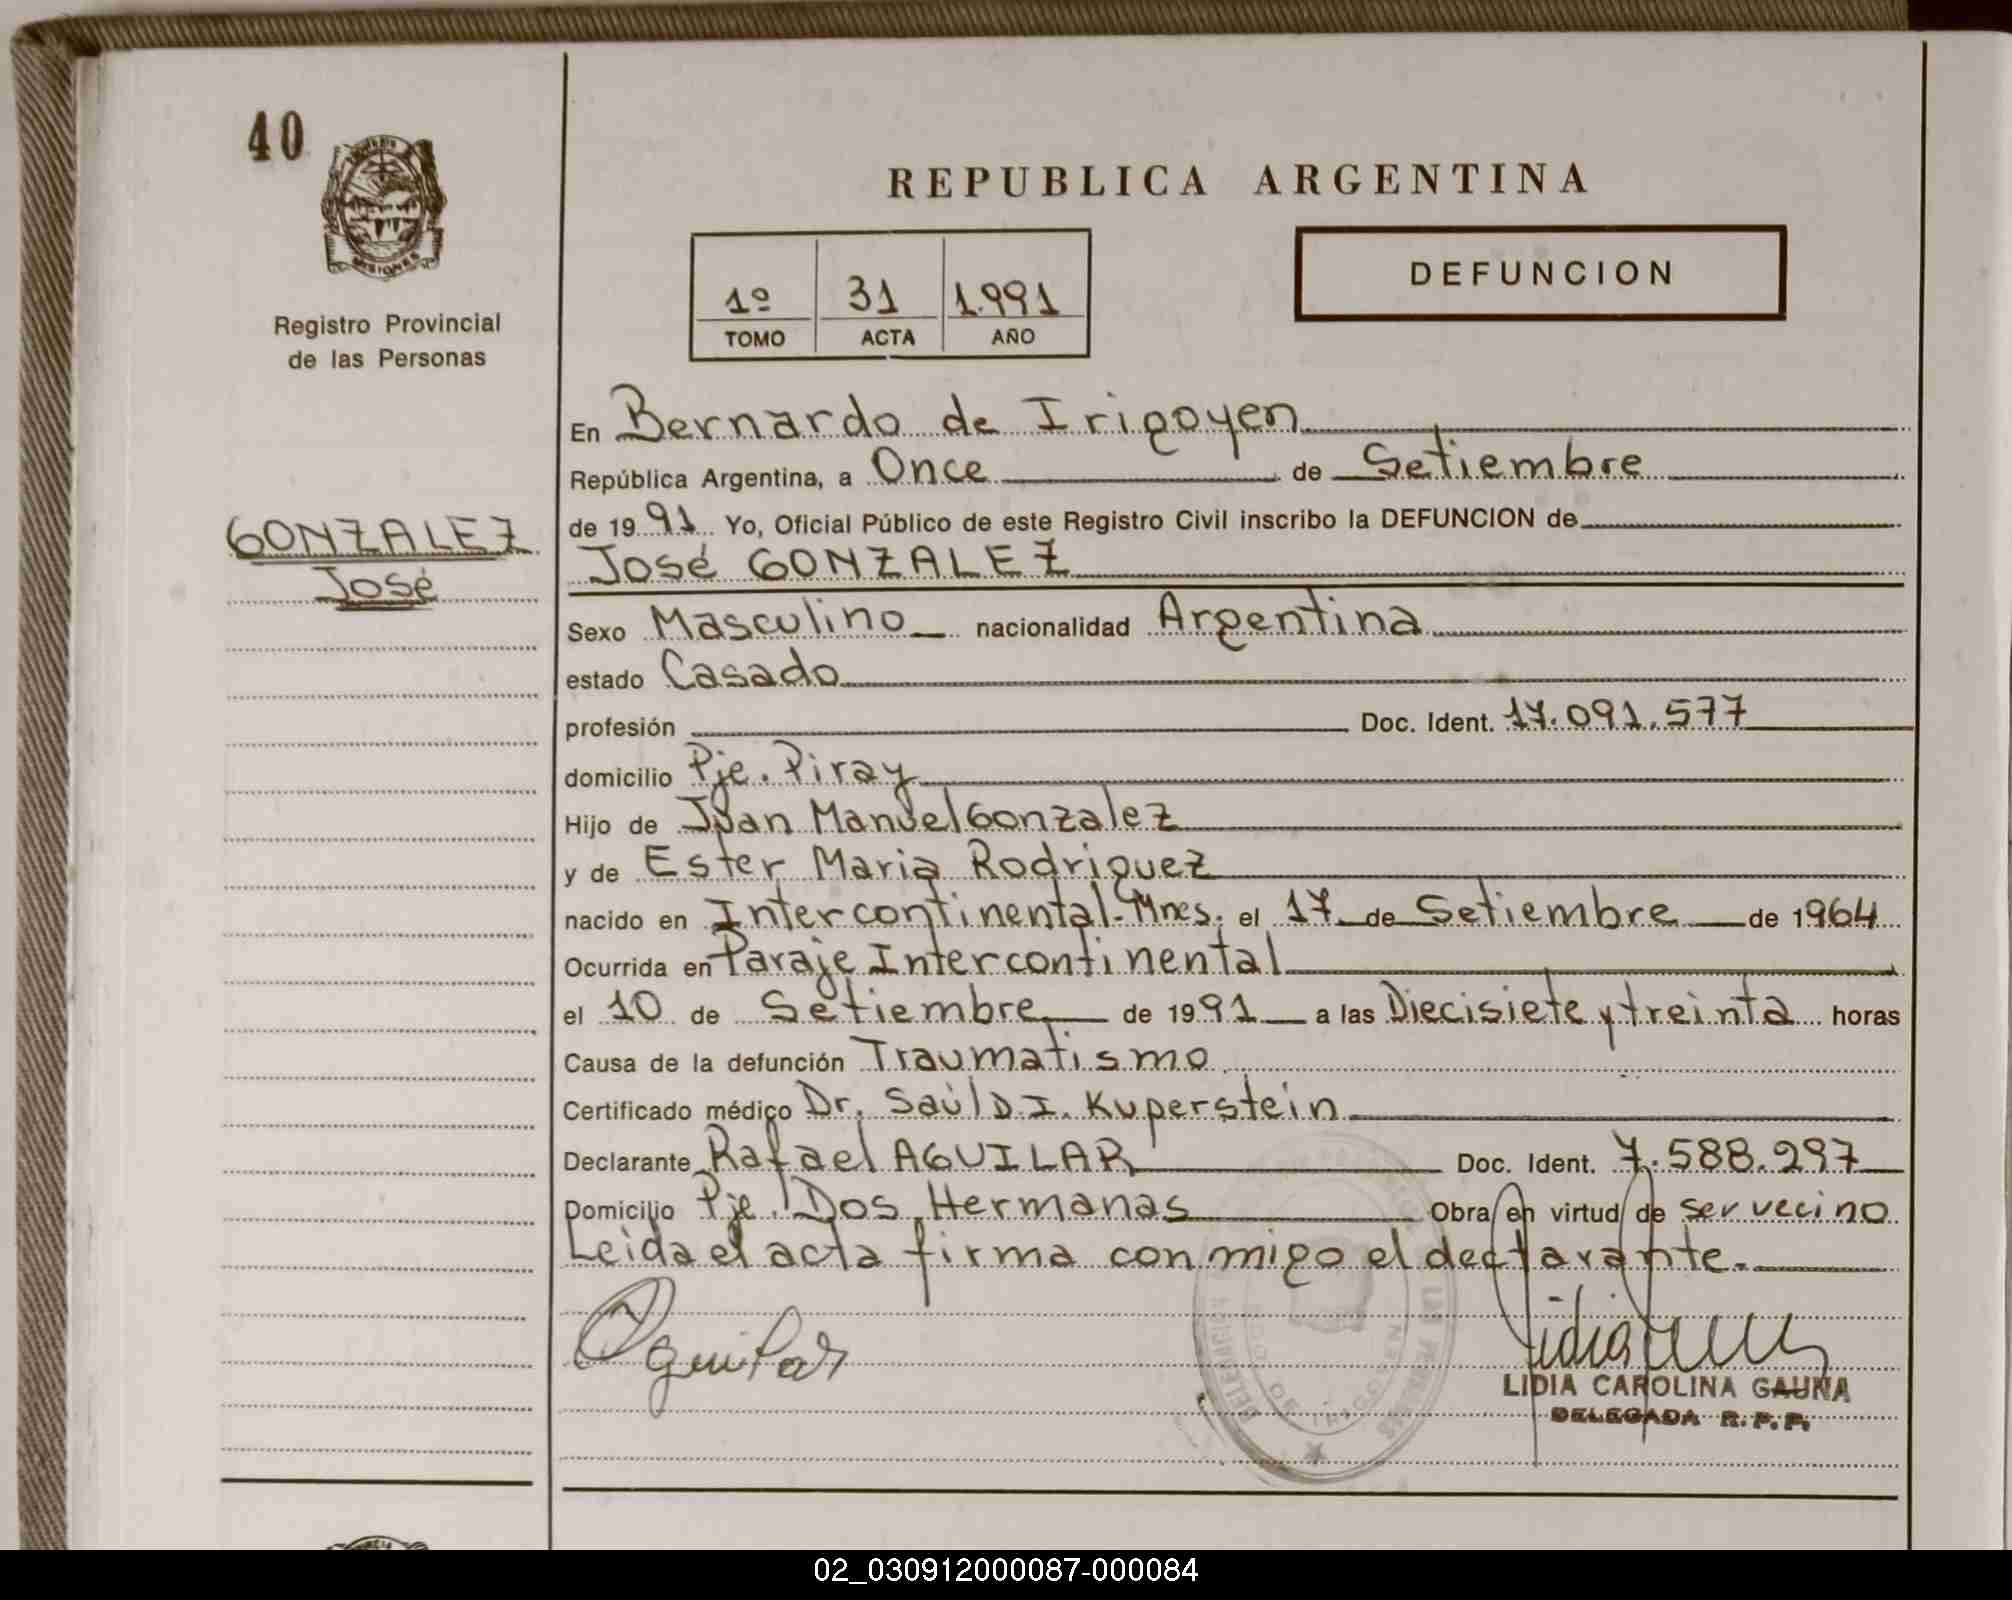 40
MISIONES
Registro Provincial
de las Personas
GONZALEZ
José
REPUBLICA ARGENTINA
1º 31 1.991
TOMO ACTA AÑO
DEFUNCION
En Bernardo de Irigoyen
República Argentina, a Once de Setiembre
de 1991 Yo, Oficial Público de este Registro Civil inscribo la DEFUNCION de
José GONZALEZ
Sexo Masculino nacionalidad Argentina
estado Casado
profesión Doc. Ident. 17.091.577
domicilio Pje. Piray
Hijo de Juan Manuel Gonzalez
y de Ester Maria Rodriguez
nacido en Intercontinental-Mnes. el 17 de Setiembre de 1964
Ocurrida en Paraje Intercontinental
el 10 de Setiembre de 1991 a las Diecisiete y treinta horas
Causa de la defunción Traumatismo
Certificado médico Dr. Saúl D.I. Kuperstein
Declarante Rafael AGUILAR Doc. Ident. 7.588.297
Domicilio Pje. Dos Hermanas Obra en virtud de ser vecino
Leida el acta firma conmigo el declarante.
Aguilar
LIDIA CAROLINA GAUNA
DELEGADA R. P. P.
DE IRIGOYEN
02_030912000087-000084